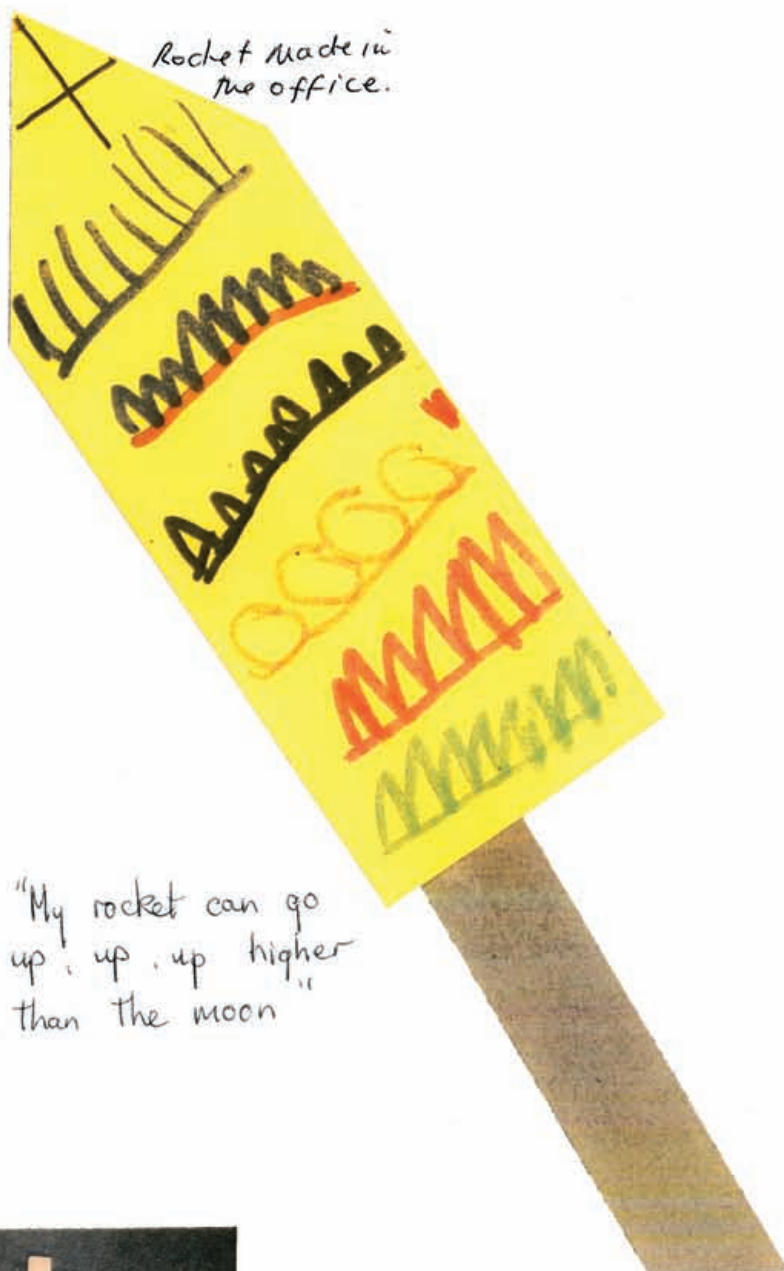 Rocket made in
the office.
"My rocket can go
up, up, up higher
than the moon"